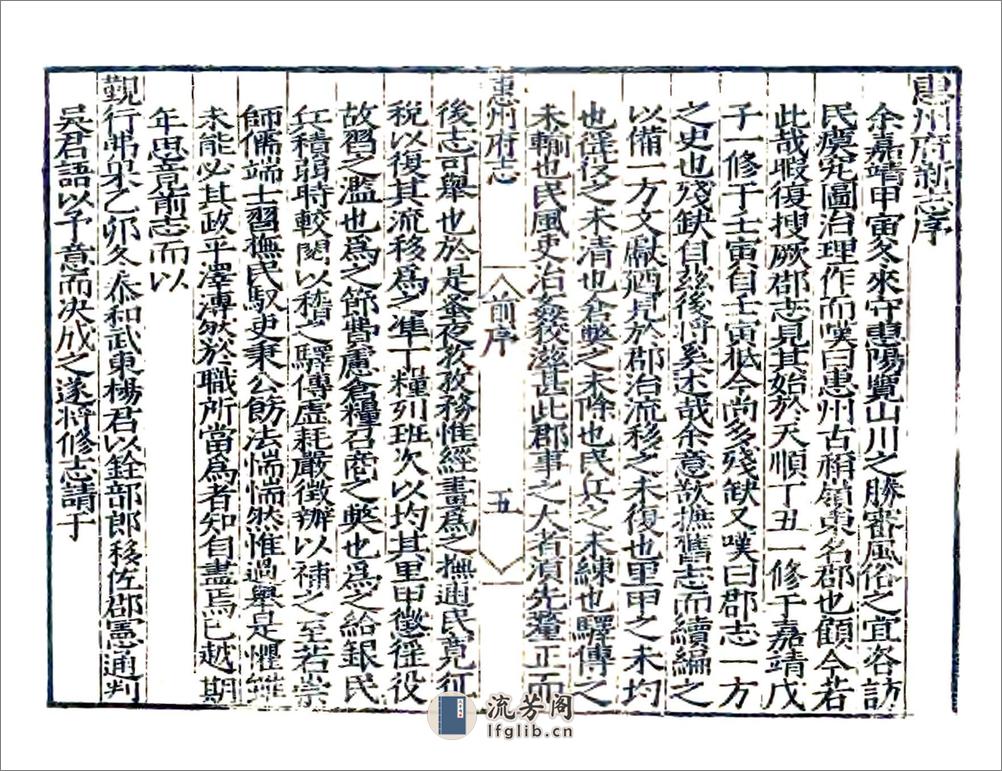 惠州府新志序
余嘉靖甲寅冬來守惠陽覽山川之勝審風俗之宜咨訪
民虞究圖治理作而嘆曰惠州古稱嶺東名郡也顧今若
此哉暇復搜厥郡志見其始於天順丁丑一修于嘉靖戊
子一修于壬寅自壬寅柢今尚多殘缺又嘆曰郡志一方
之史也殘缺自茲後將奚丕哉余意欲撫舊志而續編之
以備一方文獻廼見於郡治流移之未復也里甲之未均
也徭役之未清也倉獘之未除也民兵之未練也驛傳之
未輸也民風史治姦狡滋甚此郡事之大者湏先釐正而
惠州府志
前序
五
後志可舉也於是蚤夜孜孜務惟經畫爲之撫逋民寛征
稅以復其流移爲之準丁糧列班次以均其里甲徵徭役
故習之濫也爲之節費慮倉糧召商之獘也爲之給銀民
兵積弱時較閱以稽之驛傳虛耗嚴徵辦以補之至若崇
師儒端士習撫民馭吏秉公飭法惴惴然惟過舉是懼雖
未能必其政平澤溥然於職所當爲者知自盡焉已越期
年思竟前志而以
覲行弗果乙卯冬泰和武東楊君以銓部郎移佐郡憲通判
吳君語以予意而决成之遂將修志請于
流芳阁
lfglib.cn